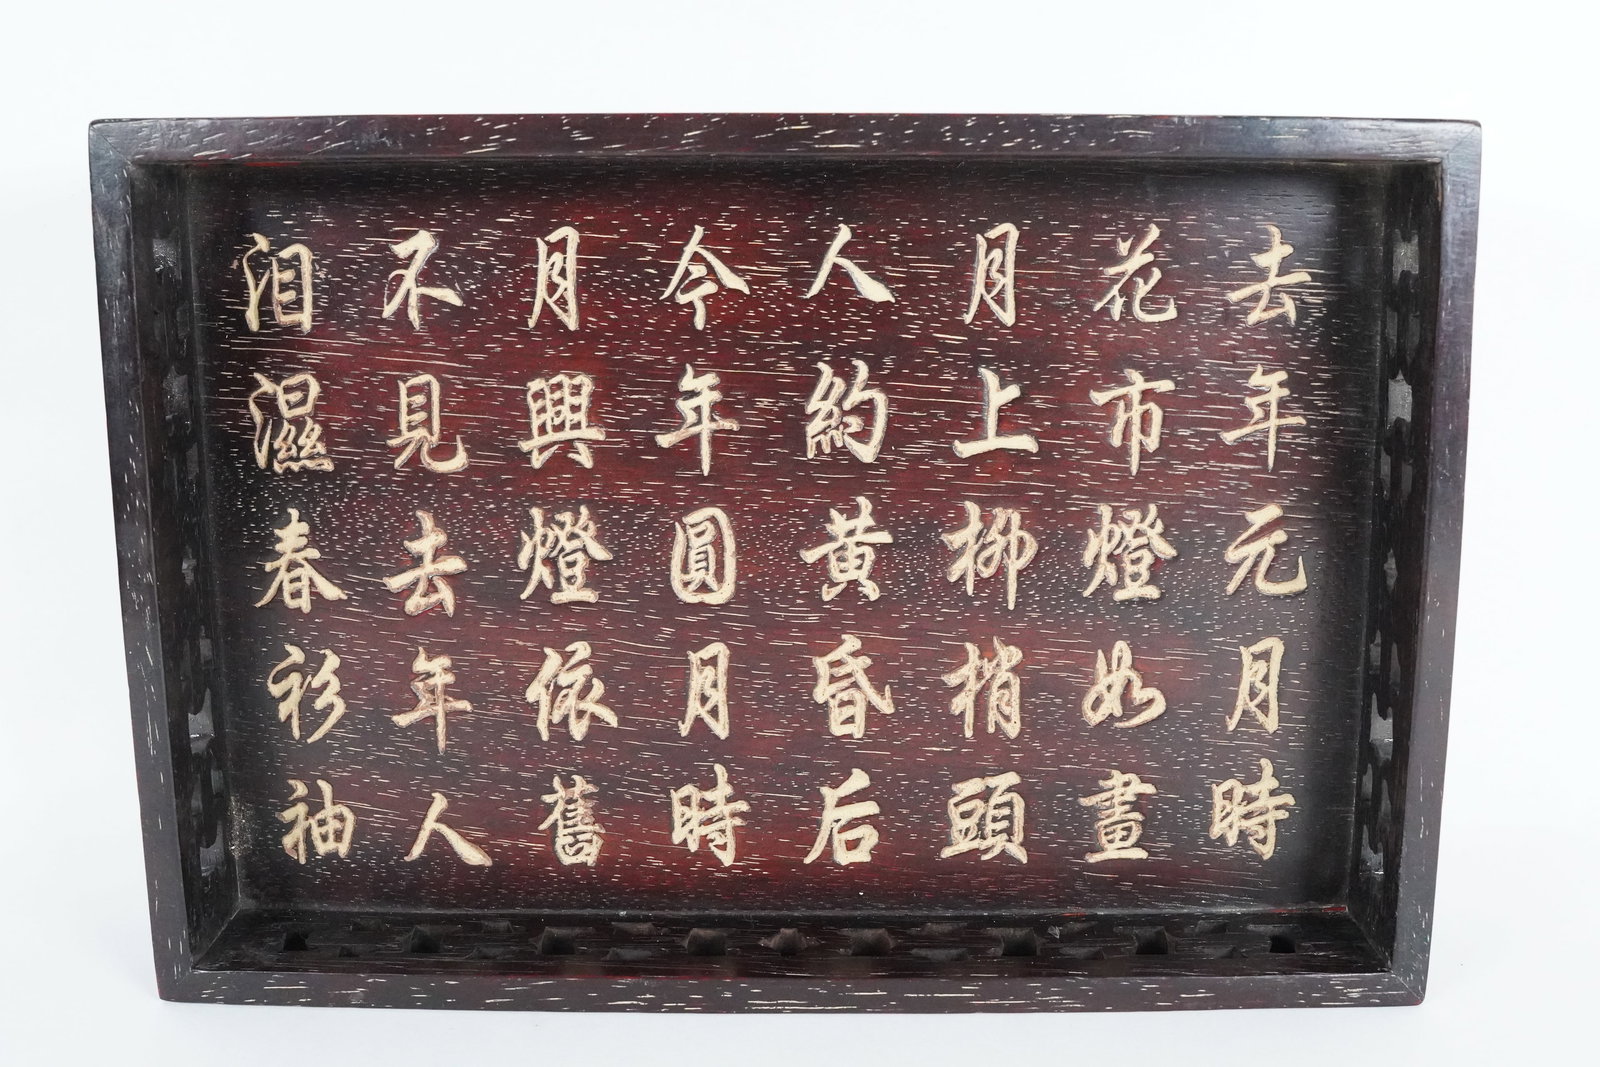 去年元月時
花市燈如畫
月上柳梢頭
人約黄昏后
今年圓月時
月興燈依舊
不見去年人
泪濕春衫袖